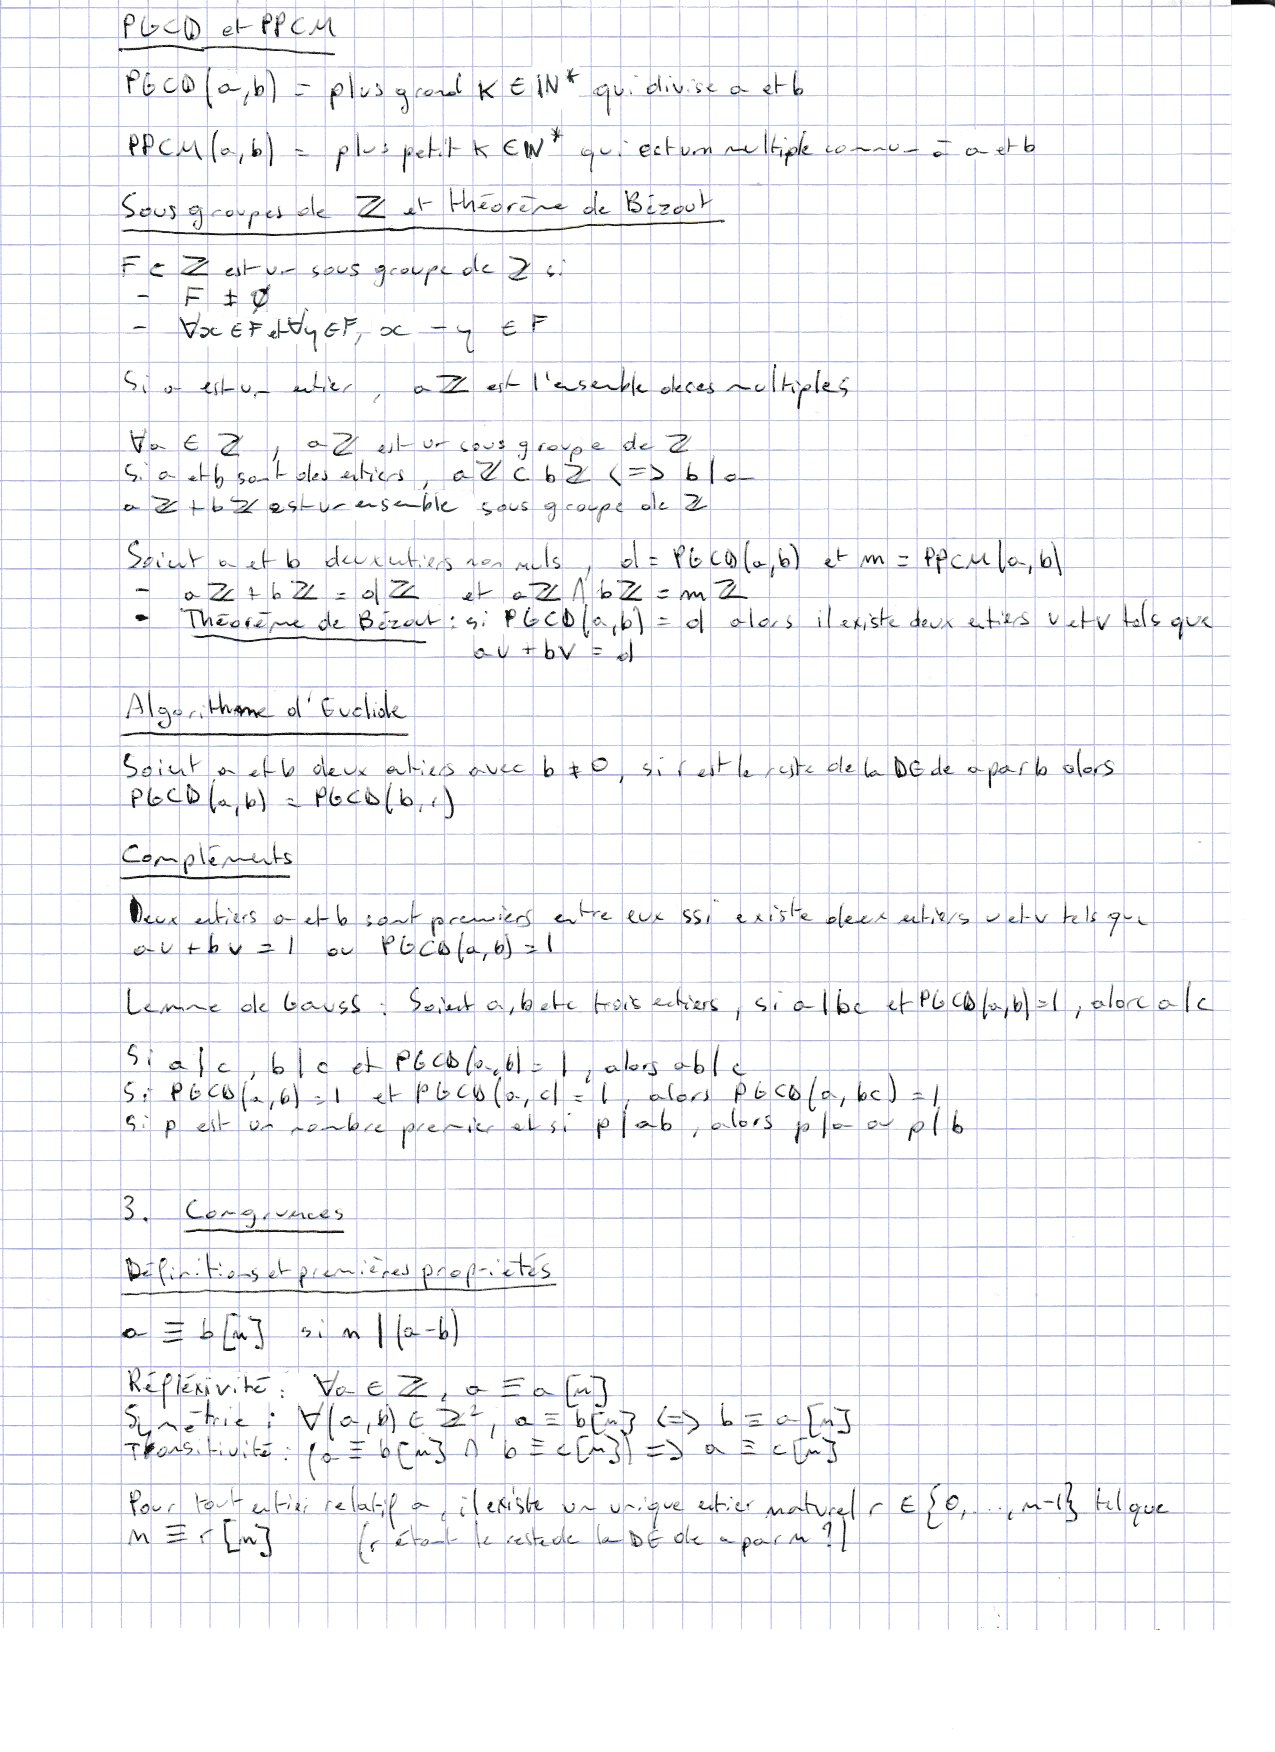 PGCD et PPCM
PGCD(a,b) = plus grand k ∈ ℕ* qui divise a et b
PPCM(a,b) = plus petit k ∈ ℕ* qui est un multiple commun à a et b
Sous groupes de ℤ et théorème de Bézout
F ⊂ ℤ est un sous groupe de ℤ si
- F ≠ ∅
- ∀x ∈ F et ∀y ∈ F, x - y ∈ F
Si a est un entier, aℤ est l'ensemble de ces multiples
∀a ∈ ℤ, aℤ est un sous groupe de ℤ
Si a et b sont des entiers, aℤ ⊂ bℤ <=> b|a
aℤ + bℤ est un ensemble sous groupe de ℤ
Soient a et b deux entiers non nuls, d = PGCD(a,b) et m = PPCM(a,b)
- aℤ + bℤ = dℤ et aℤ ∩ bℤ = mℤ
- Théorème de Bézout : si PGCD(a,b) = d alors il existe deux entiers u et v tels que
au + bv = d
Algorithme d'Euclide
Soient a et b deux entiers avec b ≠ 0, si r est le reste de la DE de a par b alors
PGCD(a,b) = PGCD(b,r)
Compléments
Deux entiers a et b sont premiers entre eux ssi existe deux entiers u et v tels que
au + bv = 1 ou PGCD(a,b) = 1
Lemme de Gauss : Soient a, b et c trois entiers, si a|bc et PGCD(a,b)=1, alors a|c
Si a|c, b|c et PGCD(a,b) = 1, alors ab|c
Si PGCD(a,b) = 1 et PGCD(a,c) = 1, alors PGCD(a,bc) = 1
Si p est un nombre premier et si p|ab, alors p|a ou p|b
3. Congruences
Définitions et premières propriétés
a ≡ b[n] si n | (a-b)
Réfléxivité : ∀a ∈ ℤ, a ≡ a[n]
Symétrie : ∀(a,b) ∈ ℤ², a ≡ b[n] <=> b ≡ a[n]
Transitivité : (a ≡ b[n] ∧ b ≡ c[n]) => a ≡ c[n]
Pour tout entier relatif a, il existe un unique entier naturel r ∈ {0,...,n-1} tel que
n ≡ r[n] (r étant le reste de la DE de a par n ?)